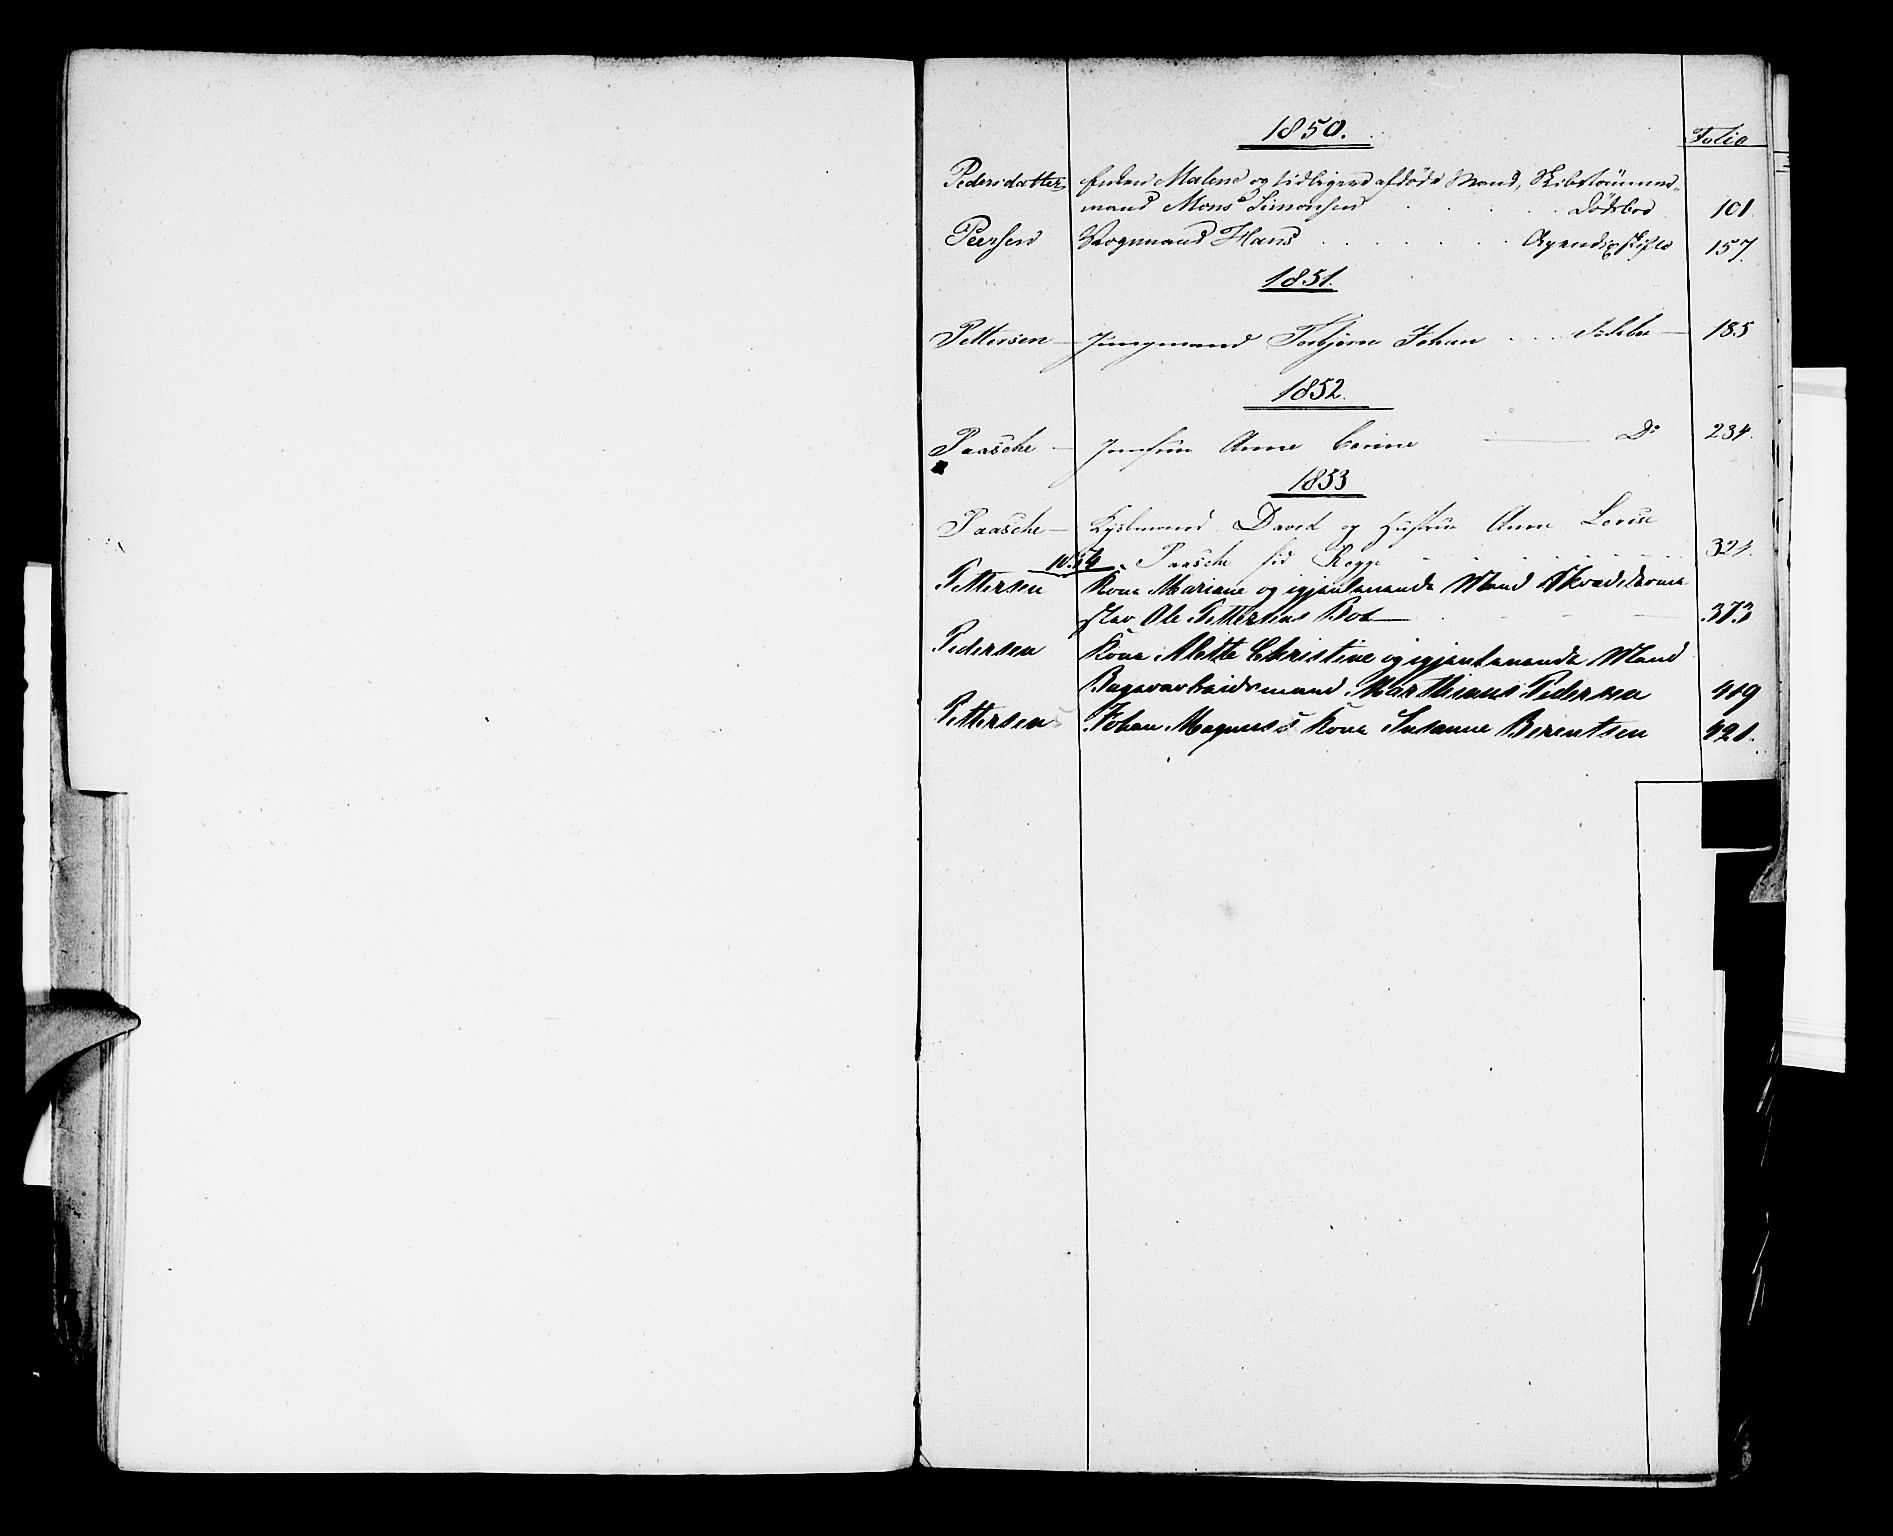 1850.
Folio
Pedersdatter, Enken Malene og tidligere afdøde Mand, Skibstømmer-
mand Mons Simonsen . . . . Dødsbo 101.
Peersen Vognmand Hans . . . . . . Apendix skifte 157.
1851.
Pettersen — Jungmand Torbjørn Johan . . . . Dødsbo — 185
1852.
Paasche — Jomfru Anne Corine — Do 234.
1853
Paasche — Kjøbmand David og Hustru Anne Lovise
Paasche fød Rogge 324.
1854
Pettersen Kone Mariane og igjenlevende Mand
Ole Pettersens Bo — 373
Pedersen Kone Mette Christine og igjenlevende Mand
Bageraarbeidsmand Marthinus Pedersen 419
Pettersen Johan Magnus's Kone Susanne Berentsen 421.